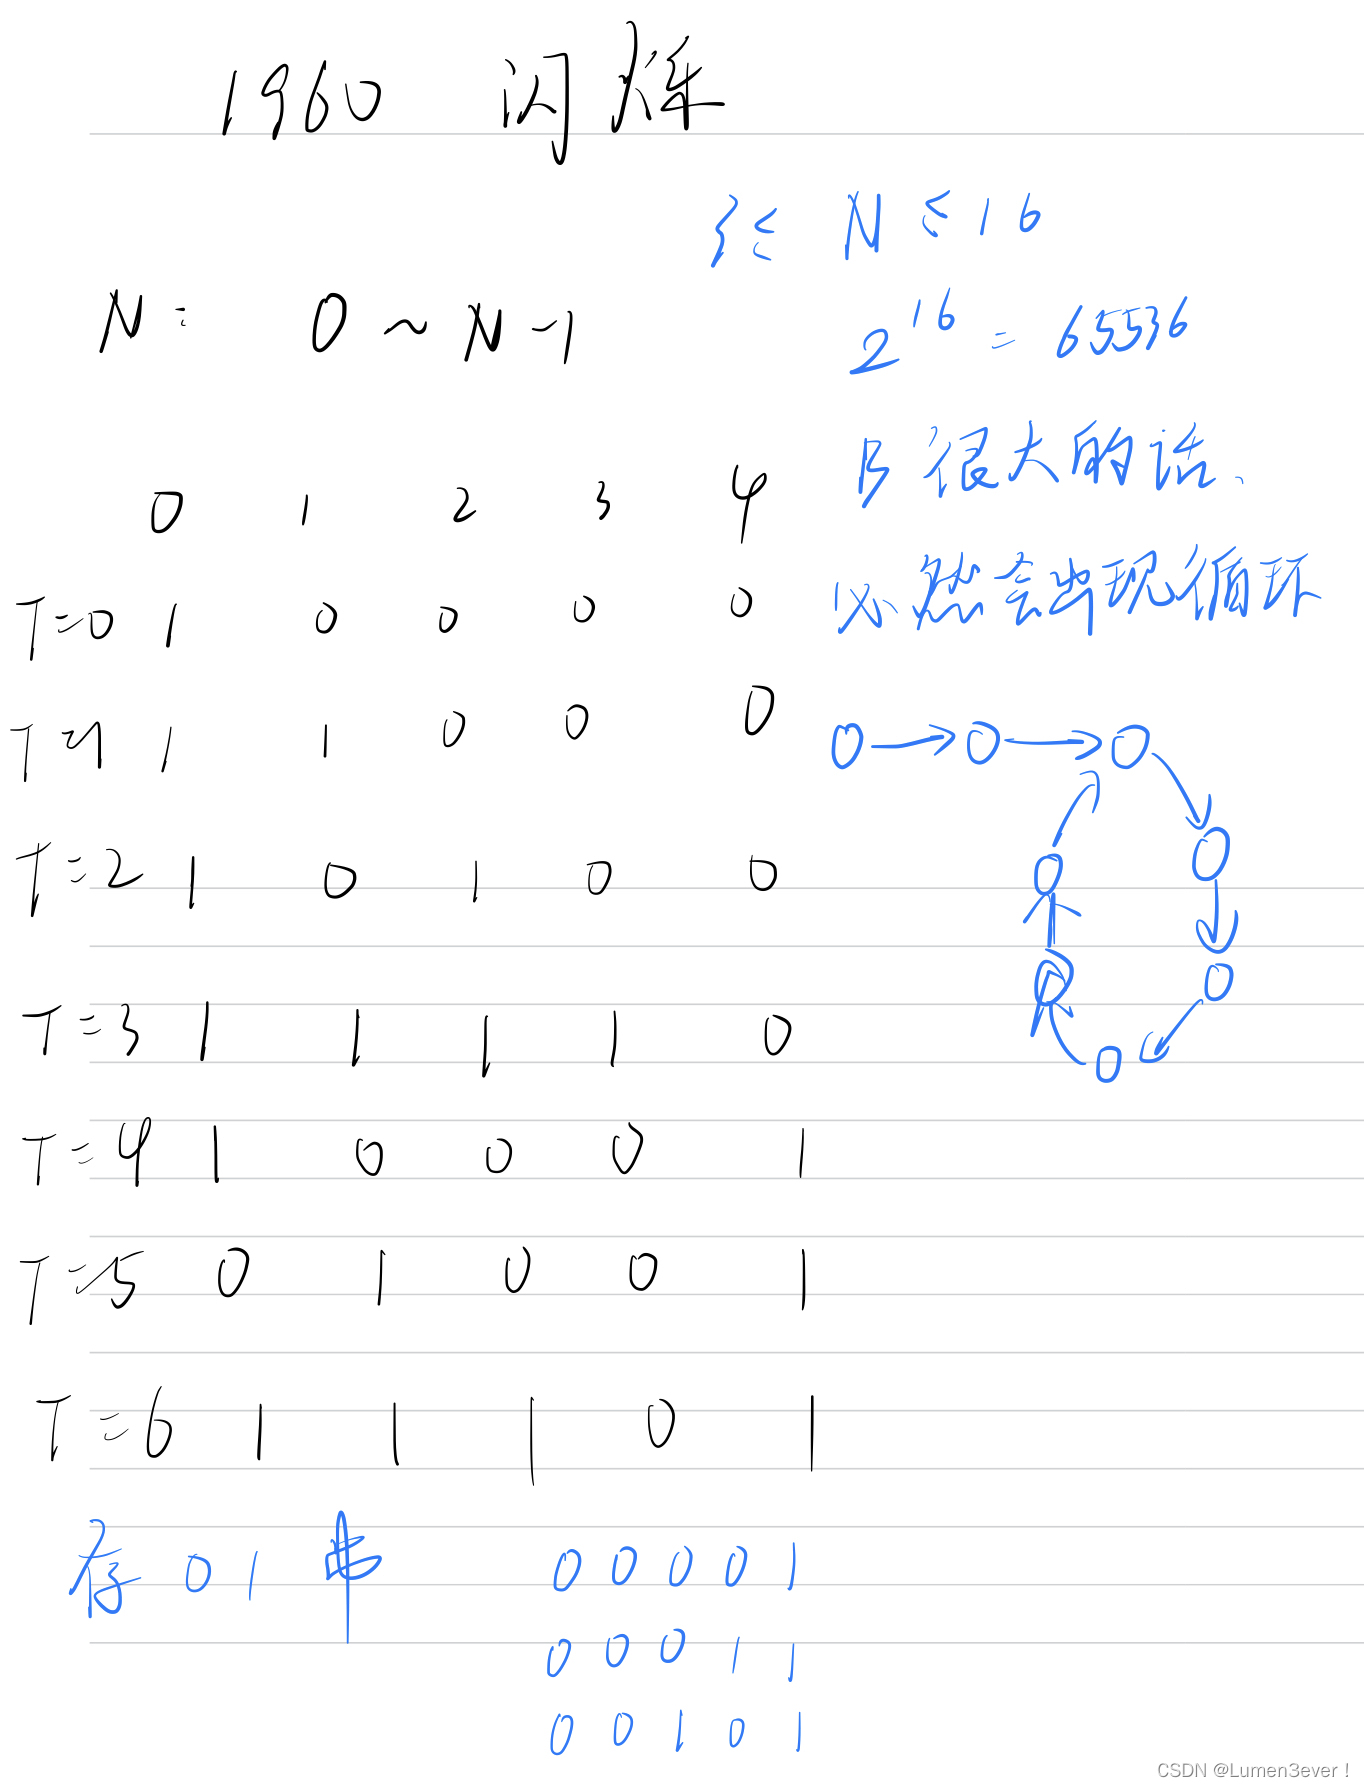 1960 闪烁
3 ≤ N ≤ 16
N: 0 ~ N-1
2^16 = 65536
B 很大的话、
0 1 2 3 4
必然会出现循环
T=0 1 0 0 0 0
T=1 1 1 0 0 0
T=2 1 0 1 0 0
T=3 1 1 1 1 0
T=4 1 0 0 0 1
T=5 0 1 0 0 1
T=6 1 1 1 0 1
存 0 1 串 0 0 0 0 1
0 0 0 1 1
0 0 1 0 1
CSDN @Lumen3ever！